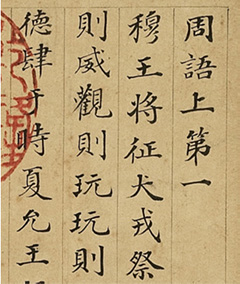 周語上第一
穆王将征犬戎祭
則威觀則玩玩則
德肆于時夏允王